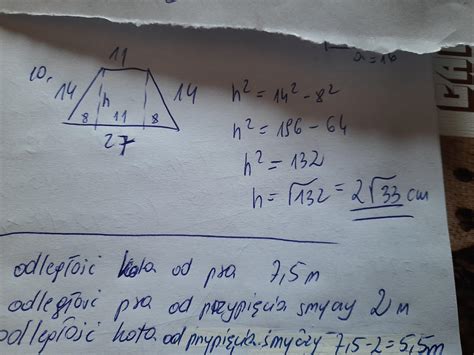 a=16
10.
11
14 h 14
8 11 8
27
h² = 14² - 8²
h² = 196 - 64
h² = 132
h = √132 = 2√33 cm
odległość kota od psa 7,5 m
odległość psa od przypięcia smyczy 2 m
odległość kota od przypięcia smyczy 7,5-2=5,5m